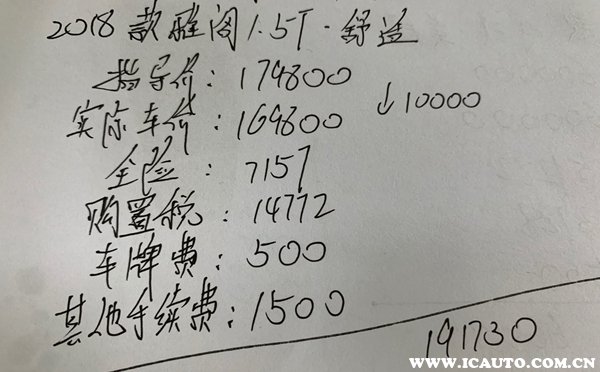 2018款雅阁1.5T·舒适
指导价：179800
实际车价：169800 ↓10000
全险：7157
购置税：14772
车牌费：500
其他手续费：1500
191730
爱车网
WWW.ICAUTO.COM.CN